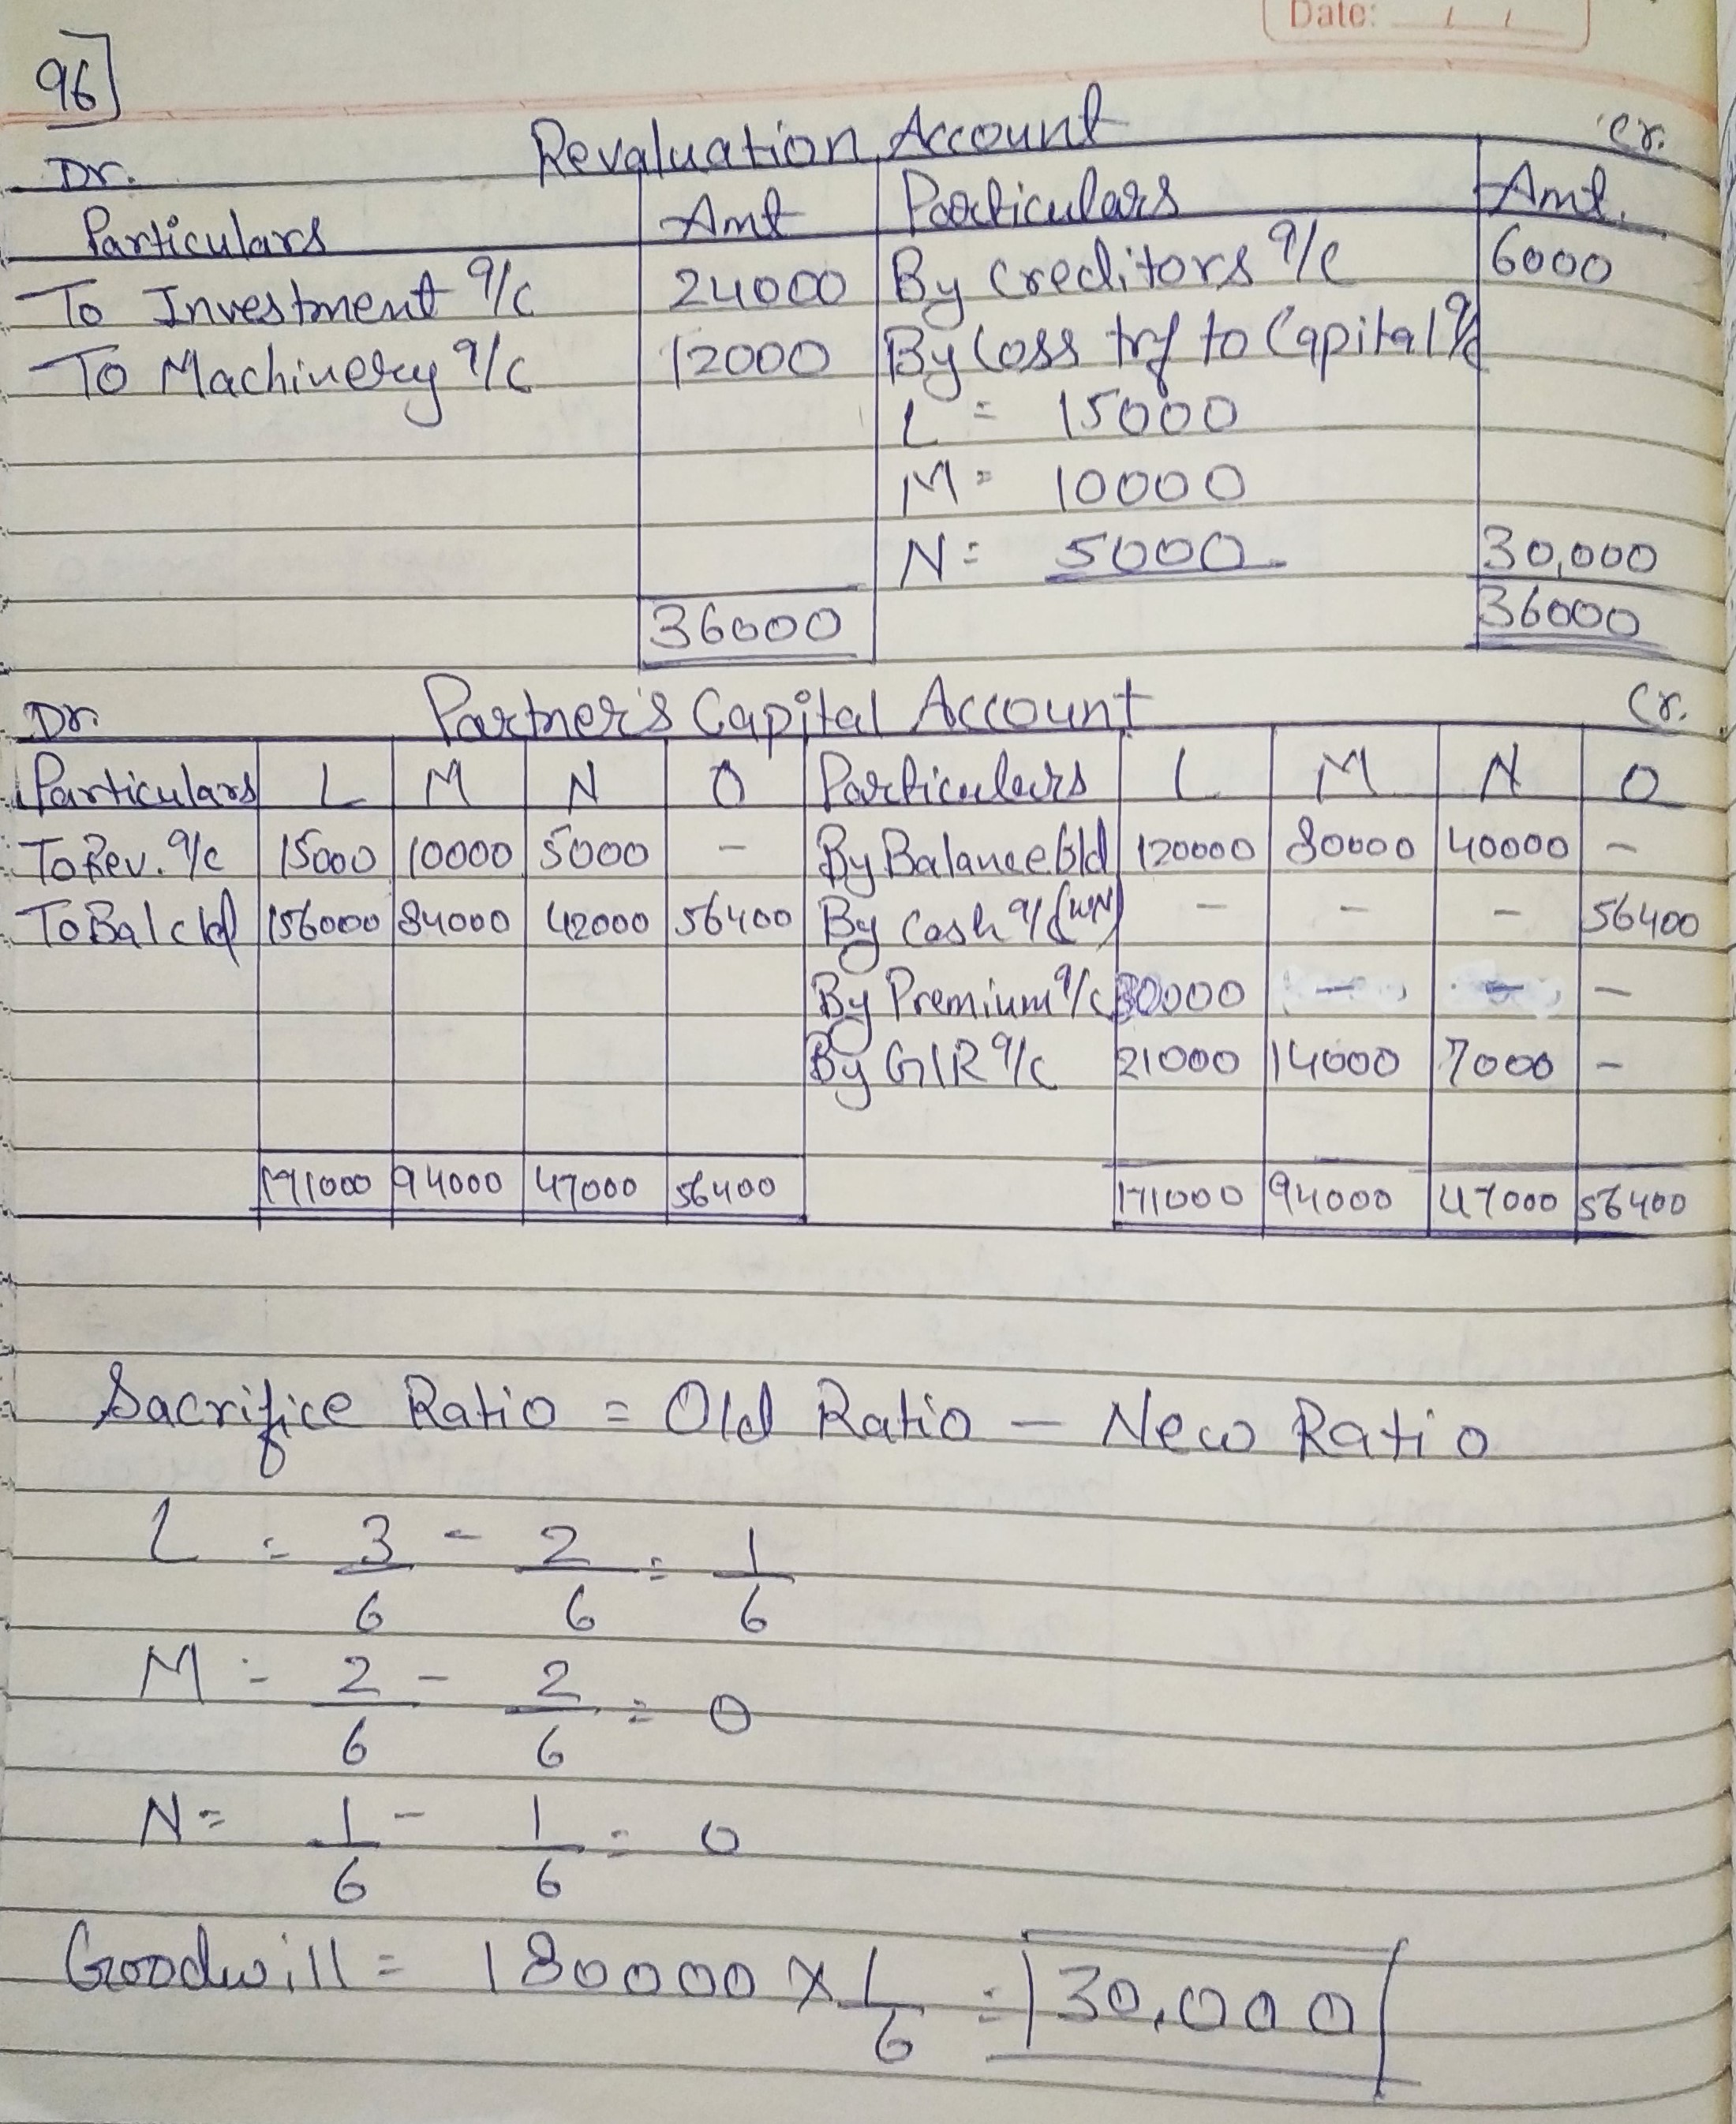 Date: / /
96]
Revaluation Account
Dr. Cr.
Particulars Amt Particulars Amt.
To Investment a/c 24000 By Creditors a/c 6000
To Machinery a/c 12000 By Loss trf to Capital a/c
L = 15000
M = 10000
N = 5000 30,000
36000 36000
Dr. Partner's Capital Account Cr.
Particulars L M N O Particulars L M N O
To Rev. a/c 15000 10000 5000 - By Balance b/d 120000 80000 40000 -
To Bal c/d 156000 84000 42000 56400 By Cash a/c (WN) - - - 56400
By Premium a/c 30000 - - -
By GIR a/c 21000 14000 7000 -
171000 94000 47000 56400 171000 94000 47000 56400
Sacrifice Ratio = Old Ratio - New Ratio
L = 3/6 - 2/6 = 1/6
M = 2/6 - 2/6 = 0
N = 1/6 - 1/6 = 0
Goodwill = 180000 × 1/6 = 30,000